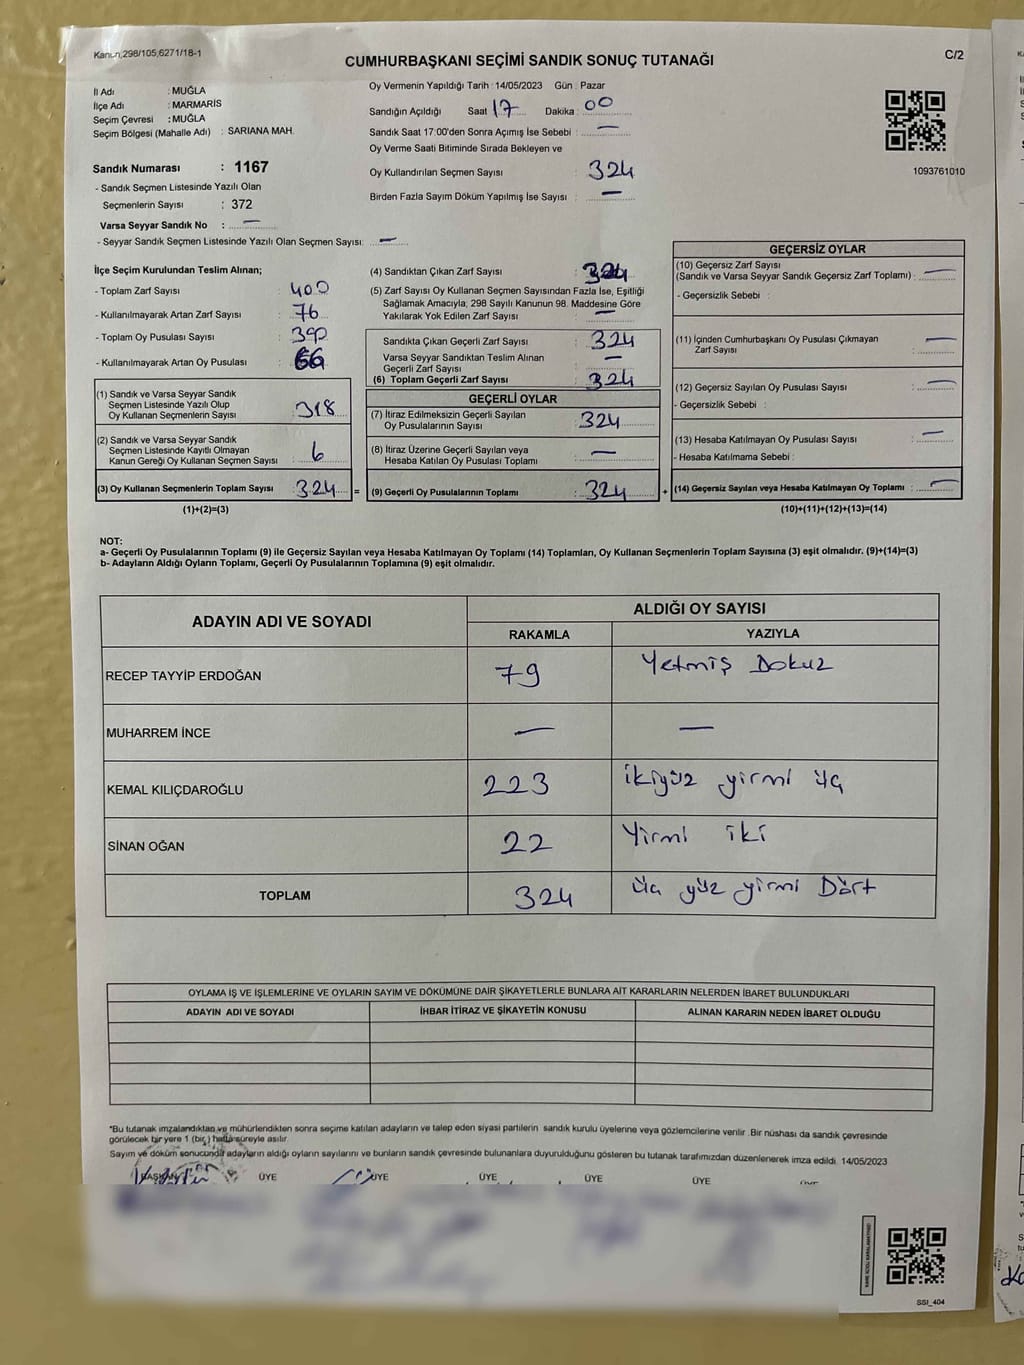 Kanun,298/105,6271/18-1
C/2
CUMHURBAŞKANI SEÇİMİ SANDIK SONUÇ TUTANAĞI
İl Adı : MUĞLA
İlçe Adı : MARMARİS
Seçim Çevresi : MUĞLA
Seçim Bölgesi (Mahalle Adı) : SARIANA MAH.
Sandık Numarası : 1167
- Sandık Seçmen Listesinde Yazılı Olan
Seçmenlerin Sayısı : 372
Varsa Seyyar Sandık No : —
- Seyyar Sandık Seçmen Listesinde Yazılı Olan Seçmen Sayısı: —
Oy Vermenin Yapıldığı Tarih : 14/05/2023 Gün : Pazar
Sandığın Açıldığı Saat 17 Dakika : 00
Sandık Saat 17:00'den Sonra Açımış İse Sebebi : —
Oy Verme Saati Bitiminde Sırada Bekleyen ve
Oy Kullandırılan Seçmen Sayısı : 324
Birden Fazla Sayım Döküm Yapılmış İse Sayısı : —
1093761010
İlçe Seçim Kurulundan Teslim Alınan;
- Toplam Zarf Sayısı : 400
- Kullanılmayarak Artan Zarf Sayısı : 76
- Toplam Oy Pusulası Sayısı : 390
- Kullanılmayarak Artan Oy Pusulası : 66
(1) Sandık ve Varsa Seyyar Sandık
Seçmen Listesinde Yazılı Olup
Oy Kullanan Seçmenlerin Sayısı : 318
(2) Sandık ve Varsa Seyyar Sandık
Seçmen Listesinde Kayıtlı Olmayan
Kanun Gereği Oy Kullanan Seçmen Sayısı : 6
(3) Oy Kullanan Seçmenlerin Toplam Sayısı : 324 =
(1)+(2)=(3)
(4) Sandıktan Çıkan Zarf Sayısı : 324
(5) Zarf Sayısı Oy Kullanan Seçmen Sayısından Fazla İse, Eşitliği
Sağlamak Amacıyla, 298 Sayılı Kanunun 98. Maddesine Göre
Yakılarak Yok Edilen Zarf Sayısı : —
Sandıkta Çıkan Geçerli Zarf Sayısı : 324
Varsa Seyyar Sandıktan Teslim Alınan
Geçerli Zarf Sayısı : —
(6) Toplam Geçerli Zarf Sayısı : 324
GEÇERLİ OYLAR
(7) İtiraz Edilmeksizin Geçerli Sayılan
Oy Pusulalarının Sayısı : 324
(8) İtiraz Üzerine Geçerli Sayılan veya
Hesaba Katılan Oy Pusulası Toplamı : —
(9) Geçerli Oy Pusulalarının Toplamı : 324 +
GEÇERSİZ OYLAR
(10) Geçersiz Zarf Sayısı
(Sandık ve Varsa Seyyar Sandık Geçersiz Zarf Toplamı) : —
- Geçersizlik Sebebi :
(11) İçinden Cumhurbaşkanı Oy Pusulası Çıkmayan
Zarf Sayısı : —
(12) Geçersiz Sayılan Oy Pusulası Sayısı : —
- Geçersizlik Sebebi :
(13) Hesaba Katılmayan Oy Pusulası Sayısı : —
- Hesaba Katılmama Sebebi :
(14) Geçersiz Sayılan veya Hesaba Katılmayan Oy Toplamı : —
(10)+(11)+(12)+(13)=(14)
NOT:
a- Geçerli Oy Pusulalarının Toplamı (9) ile Geçersiz Sayılan veya Hesaba Katılmayan Oy Toplamı (14) Toplamları, Oy Kullanan Seçmenlerin Toplam Sayısına (3) eşit olmalıdır. (9)+(14)=(3)
b- Adayların Aldığı Oyların Toplamı, Geçerli Oy Pusulalarının Toplamına (9) eşit olmalıdır.
ADAYIN ADI VE SOYADI
ALDIĞI OY SAYISI
RAKAMLA YAZIYLA
RECEP TAYYİP ERDOĞAN 79 Yetmiş Dokuz
MUHARREM İNCE — —
KEMAL KILIÇDAROĞLU 223 ikiyüz yirmi üç
SİNAN OĞAN 22 Yirmi iki
TOPLAM 324 üç yüz yirmi Dört
OYLAMA İŞ VE İŞLEMLERİNE VE OYLARIN SAYIM VE DÖKÜMÜNE DAİR ŞİKAYETLERLE BUNLARA AİT KARARLARIN NELERDEN İBARET BULUNDUKLARI
ADAYIN ADI VE SOYADI İHBAR İTİRAZ VE ŞİKAYETİN KONUSU ALINAN KARARIN NEDEN İBARET OLDUĞU
*Bu tutanak imzalandıktan ve mühürlendikten sonra seçime katılan adayların ve talep eden siyasi partilerin sandık kurulu üyelerine veya gözlemcilerine verilir .Bir nüshası da sandık çevresinde
görülecek bir yere 1 (bir,) hafta süreyle asılır.
Sayım ve döküm sonucunda adayların aldığı oyların sayılarını ve bunların sandık çevresinde bulunanlara duyurulduğunu gösteren bu tutanak tarafımızdan düzenlenerek imza edildi. 14/05/2023
BAŞKAN ÜYE ÜYE ÜYE ÜYE ÜYE
SSI_404